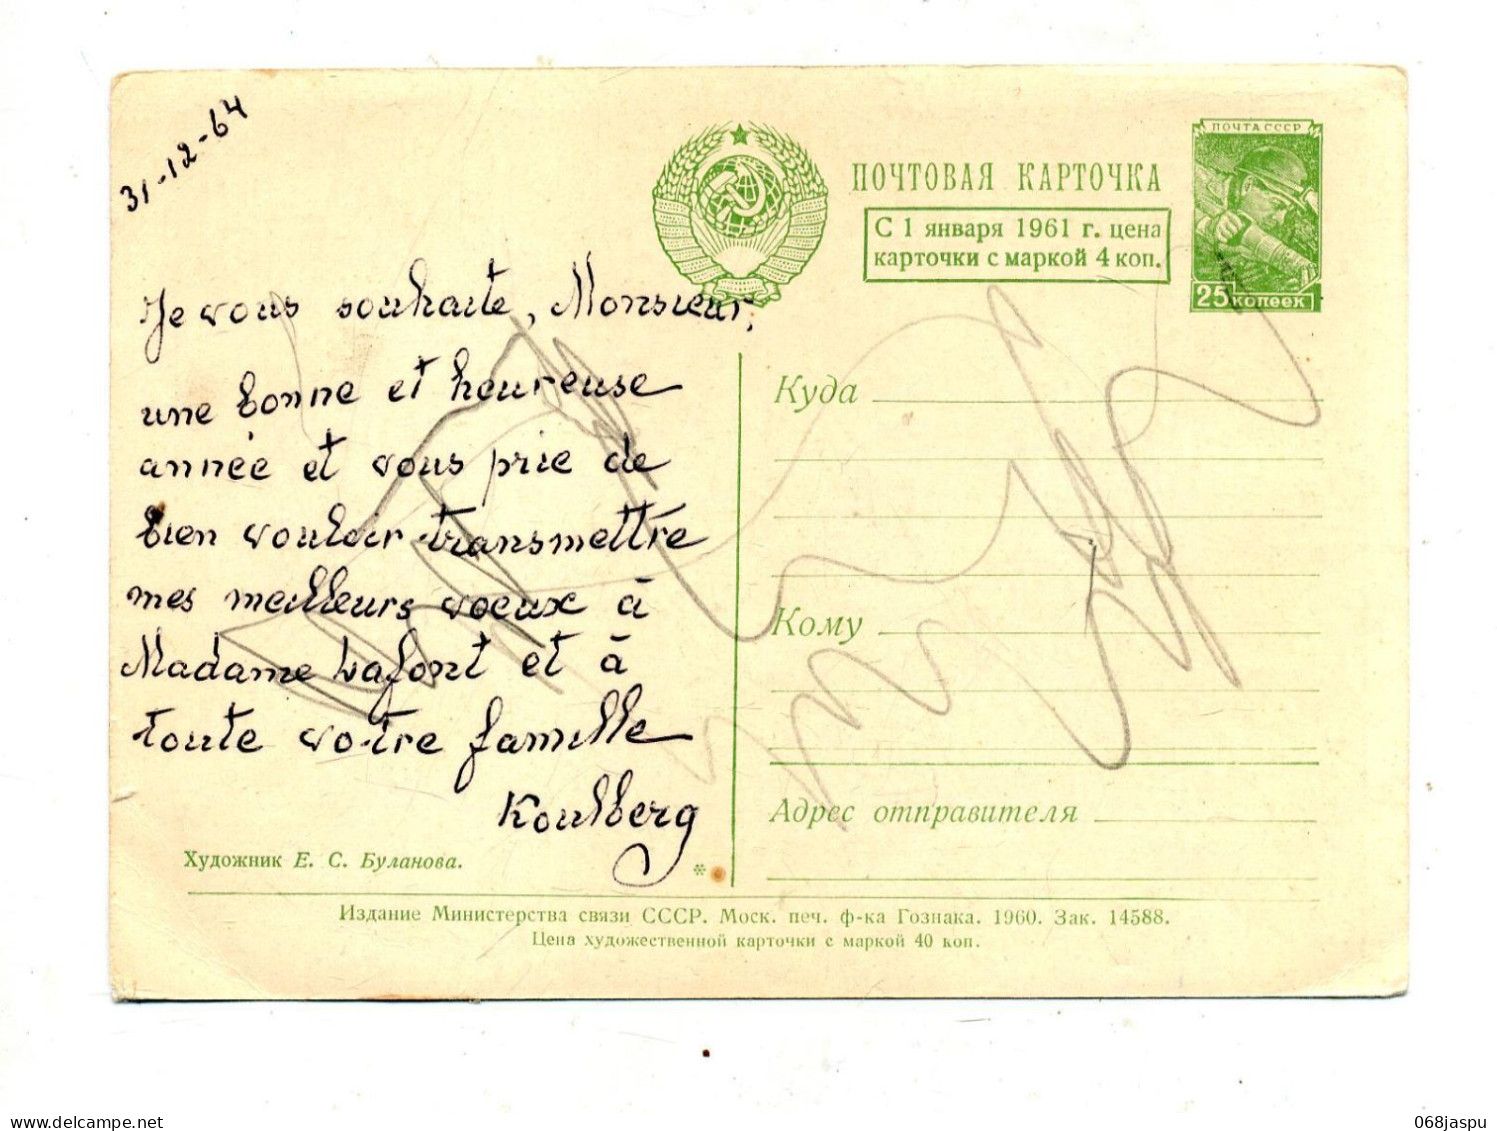 31-12-64
ПОЧТА СССР
ПОЧТОВАЯ КАРТОЧКА
С 1 января 1961 г. цена
карточки с маркой 4 коп.
25 копеек
Je vous souhaite, Monsieur,
une bonne et heureuse
année et vous prie de
bien vouloir transmettre
mes meilleurs voeux à
Madame Lafont et à
toute votre famille
Koulberg
Куда
Кому
Адрес отправителя
Художник Е. С. Буланова.
*
Издание Министерства связи СССР. Моск. печ. ф-ка Гознака. 1960. Зак. 14588.
Цена художественной карточки с маркой 40 коп.
delcampe.net
068jaspu